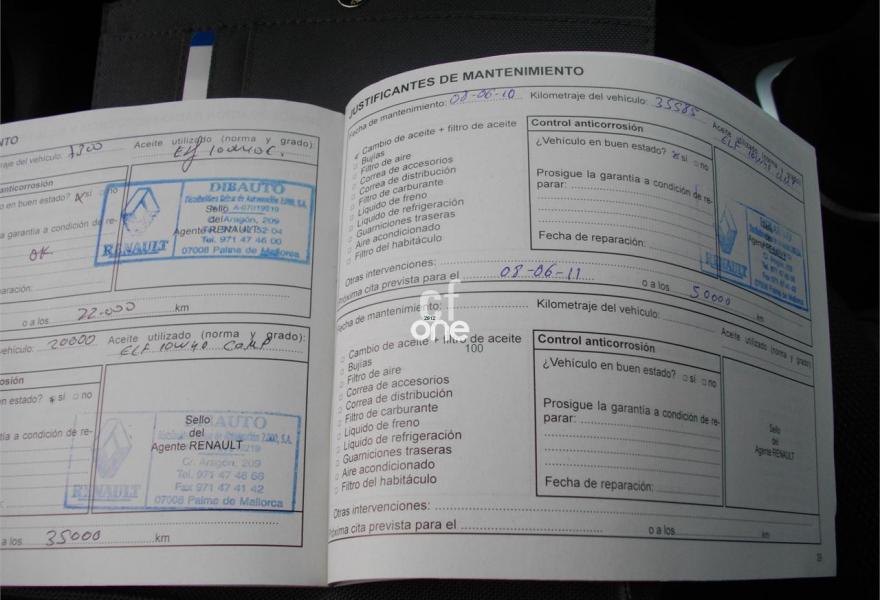 NTO
raje del vehículo: 7800 Aceite utilizado (norma y grado):
Elf 10W40 C.
anticorrosión
o en buen estado? sí no
a garantía a condición de re-
OK
DIBAUTO
Sello
del
Agente RENAULT
Aragón, 209
Tel. 971 47 46 00
07008 Palma de Mallorca
RENAULT
aración:
o a los 22.000 km
vehículo: 20000 Aceite utilizado (norma y grado):
ELF 10W40 COMP
osión
en estado? sí no
tía a condición de re-
AUTO
Sello
del
Agente RENAULT
Aragón, 209
Tel. 971 47 46 66
Fax 971 47 41 42
07008 Palma de Mallorca
RENAULT
a los 35000 km
JUSTIFICANTES DE MANTENIMIENTO
Fecha de mantenimiento: 08-06-10 Kilometraje del vehículo: 35585 Aceite utilizado (norma y grado)
ELF 10W40
Cambio de aceite + filtro de aceite
Bujías
Filtro de aire
Correa de accesorios
Correa de distribución
Filtro de carburante
Líquido de freno
Líquido de refrigeración
Guarniciones traseras
Aire acondicionado
Filtro del habitáculo
Control anticorrosión
¿Vehículo en buen estado? sí no
Prosigue la garantía a condición de re-
parar:
Fecha de reparación:
Agente RENAULT
RENAULT
Otras intervenciones:
Próxima cita prevista para el 08-06-11 o a los 50000 km
cf
one
100
Fecha de mantenimiento: Kilometraje del vehículo: Aceite utilizado (norma y grado)
Cambio de aceite + filtro de aceite
Bujías
Filtro de aire
Correa de accesorios
Correa de distribución
Filtro de carburante
Líquido de freno
Líquido de refrigeración
Guarniciones traseras
Aire acondicionado
Filtro del habitáculo
Control anticorrosión
¿Vehículo en buen estado? sí no
Prosigue la garantía a condición de re-
parar:
Fecha de reparación:
Sello
del
Agente RENAULT
Otras intervenciones:
Próxima cita prevista para el o a los km